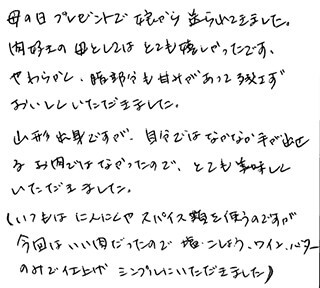 母の日プレゼントで娘から送られてきました。
肉好きの母としてはとても嬉しかったです。
やわらかく、脂部分も甘みがあって残さず
おいしくいただきました。
山形出身ですが、自分ではなかなか手が出せ
るお肉ではなかったので、とても美味しく
いただきました。
(いつもは にんにくや スパイス類を使うのですが
今回はいい肉だったので 塩・こしょう、ワイン、バター
のみで仕上げ シンプルにいただきました)